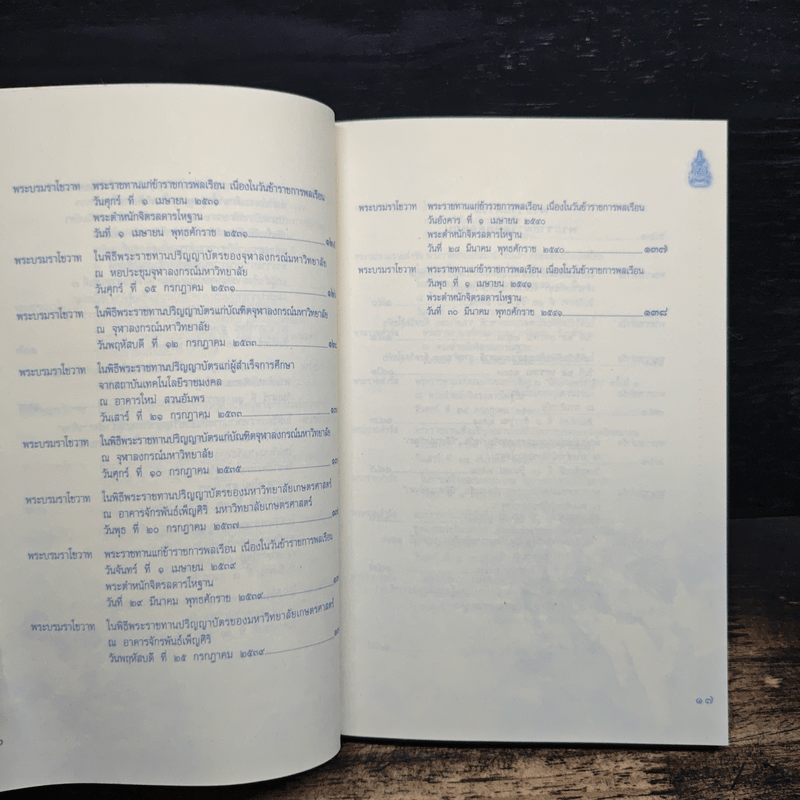 พระบรมราโชวาท พระราชทานแก่ข้าราชการพลเรือน เนื่องในวันข้าราชการพลเรือน
วันศุกร์ ที่ ๑ เมษายน ๒๕๓๑
พระตำหนักจิตรลดารโหฐาน
วันที่ ๑ เมษายน พุทธศักราช ๒๕๓๑
พระบรมราโชวาท ในพิธีพระราชทานปริญญาบัตรของจุฬาลงกรณ์มหาวิทยาลัย
ณ หอประชุมจุฬาลงกรณ์มหาวิทยาลัย
วันศุกร์ ที่ ๑๕ กรกฎาคม ๒๕๓๑
พระบรมราโชวาท ในพิธีพระราชทานปริญญาบัตรแก่บัณฑิตจุฬาลงกรณ์มหาวิทยาลัย
ณ จุฬาลงกรณ์มหาวิทยาลัย
วันพฤหัสบดี ที่ ๑๒ กรกฎาคม ๒๕๓๓
พระบรมราโชวาท ในพิธีพระราชทานปริญญาบัตรแก่ผู้สำเร็จการศึกษา
จากสถาบันเทคโนโลยีราชมงคล
ณ อาคารใหม่ สวนอัมพร
วันเสาร์ ที่ ๒๑ กรกฎาคม ๒๕๓๓
พระบรมราโชวาท ในพิธีพระราชทานปริญญาบัตรแก่บัณฑิตจุฬาลงกรณ์มหาวิทยาลัย
ณ จุฬาลงกรณ์มหาวิทยาลัย
วันศุกร์ ที่ ๑๐ กรกฎาคม ๒๕๓๕
พระบรมราโชวาท ในพิธีพระราชทานปริญญาบัตรของมหาวิทยาลัยเกษตรศาสตร์
ณ อาคารจักรพันธ์เพ็ญศิริ มหาวิทยาลัยเกษตรศาสตร์
วันพุธ ที่ ๒๐ กรกฎาคม ๒๕๓๗
พระบรมราโชวาท พระราชทานแก่ข้าราชการพลเรือน เนื่องในวันข้าราชการพลเรือน
วันจันทร์ ที่ ๑ เมษายน ๒๕๓๙
พระตำหนักจิตรลดารโหฐาน
วันที่ ๒๙ มีนาคม พุทธศักราช ๒๕๓๙
พระบรมราโชวาท ในพิธีพระราชทานปริญญาบัตรของมหาวิทยาลัยเกษตรศาสตร์
ณ อาคารจักรพันธ์เพ็ญศิริ
วันพฤหัสบดี ที่ ๒๕ กรกฎาคม ๒๕๓๙
พระบรมราโชวาท พระราชทานแก่ข้าราชการพลเรือน เนื่องในวันข้าราชการพลเรือน
วันอังคาร ที่ ๑ เมษายน ๒๕๔๐
พระตำหนักจิตรลดารโหฐาน
วันที่ ๒๘ มีนาคม พุทธศักราช ๒๕๔๐ ๑๓๗
พระบรมราโชวาท พระราชทานแก่ข้าราชการพลเรือน เนื่องในวันข้าราชการพลเรือน
วันพุธ ที่ ๑ เมษายน ๒๕๔๑
พระตำหนักจิตรลดารโหฐาน
วันที่ ๓๐ มีนาคม พุทธศักราช ๒๕๔๑ ๑๓๘
๑๗